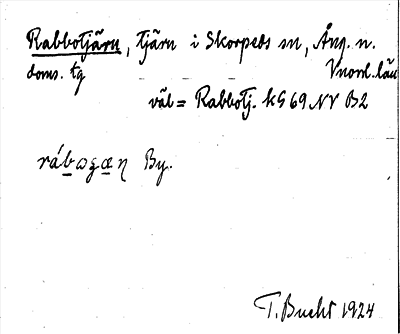 Rabbotjärn, tjärn i Skorpeds sn, Ång. n.
doms. tg Vnorrl. län
väl = Rabbotj. kS 69 NV B2
By.
T. Bucht 1924